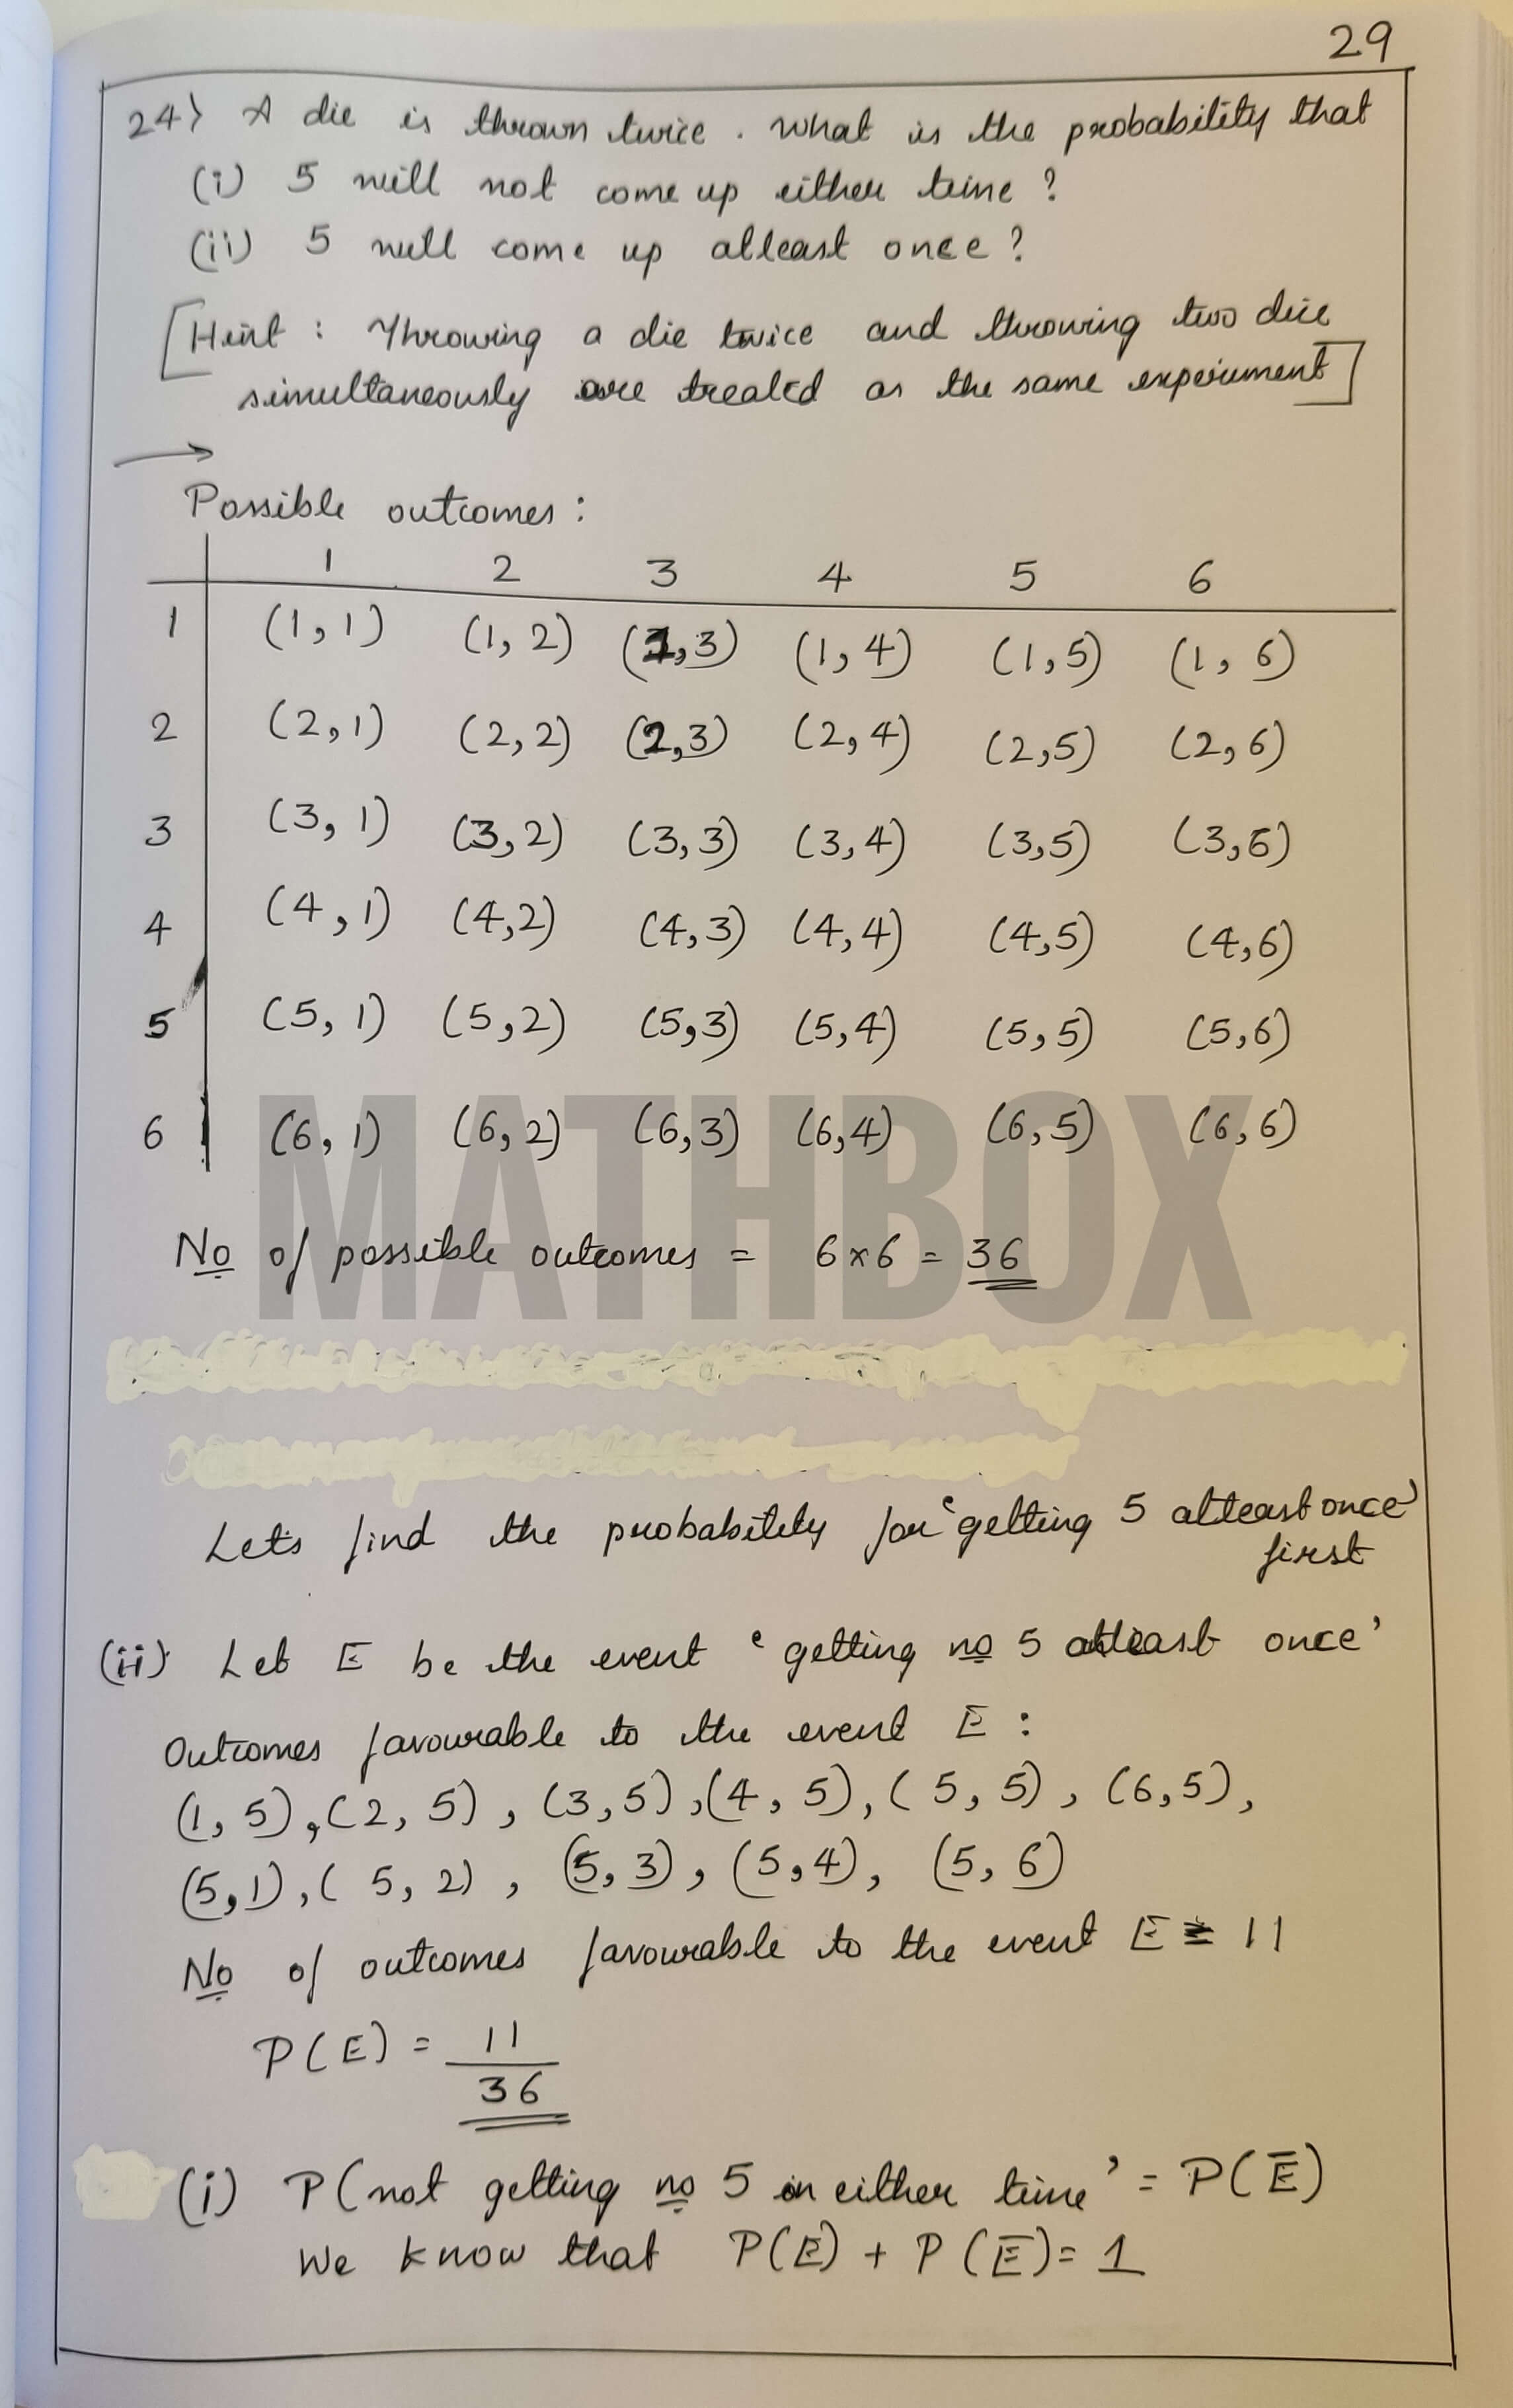 29
24) A die is thrown twice. What is the probability that
(i) 5 will not come up either time?
(ii) 5 will come up atleast once?
[Hint: Throwing a die twice and throwing two dice
simultaneously are treated as the same experiment]
Possible outcomes:
1 2 3 4 5 6
1 (1,1) (1,2) (1,3) (1,4) (1,5) (1,6)
2 (2,1) (2,2) (2,3) (2,4) (2,5) (2,6)
3 (3,1) (3,2) (3,3) (3,4) (3,5) (3,6)
4 (4,1) (4,2) (4,3) (4,4) (4,5) (4,6)
5 (5,1) (5,2) (5,3) (5,4) (5,5) (5,6)
6 (6,1) (6,2) (6,3) (6,4) (6,5) (6,6)
MATHBOX
No of possible outcomes = 6×6 = 36
Let's find the probability for 'getting 5 atleast once'
first
(ii) Let E be the event 'getting no 5 atleast once'
Outcomes favourable to the event E:
(1,5),(2,5),(3,5),(4,5),(5,5),(6,5),
(5,1),(5,2),(5,3),(5,4),(5,6)
No of outcomes favourable to the event E = 11
P(E) = 11
36
(i) P(not getting no 5 in either time' = P(E̅)
We know that P(E) + P(E̅) = 1